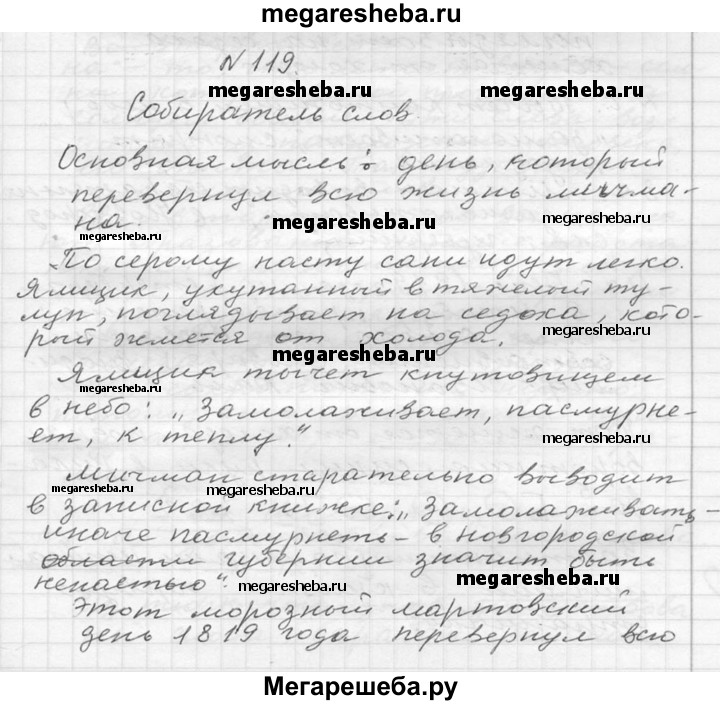 megaresheba.ru
№ 119.
megaresheba.ru megaresheba.ru
Собиратель слов
Основная мысль: день, который
перевернул всю жизнь мичма-
на. megaresheba.ru megaresheba.ru megaresheba.ru
По серому насту сани идут легко.
Ямщик, укутанный в тяжелый ту-
луп, поглядывает на седока, кото-
megaresheba.ru
рый жмется от холода.
megaresheba.ru
Ямщик тычет кнутовищем
megaresheba.ru
в небо: „Замолаживает, пасмурне-
ет, к теплу."
megaresheba.ru
Мичман старательно выводит
megaresheba.ru megaresheba.ru megaresheba.ru
в записной книжке: „Замолаживать-
иначе пасмурнеть - в Новгородской
области губернии значит быть
ненастью".
megaresheba.ru megaresheba.ru
Этот морозный мартовский
день 1819 года перевернул всю
Мегарешеба.ру